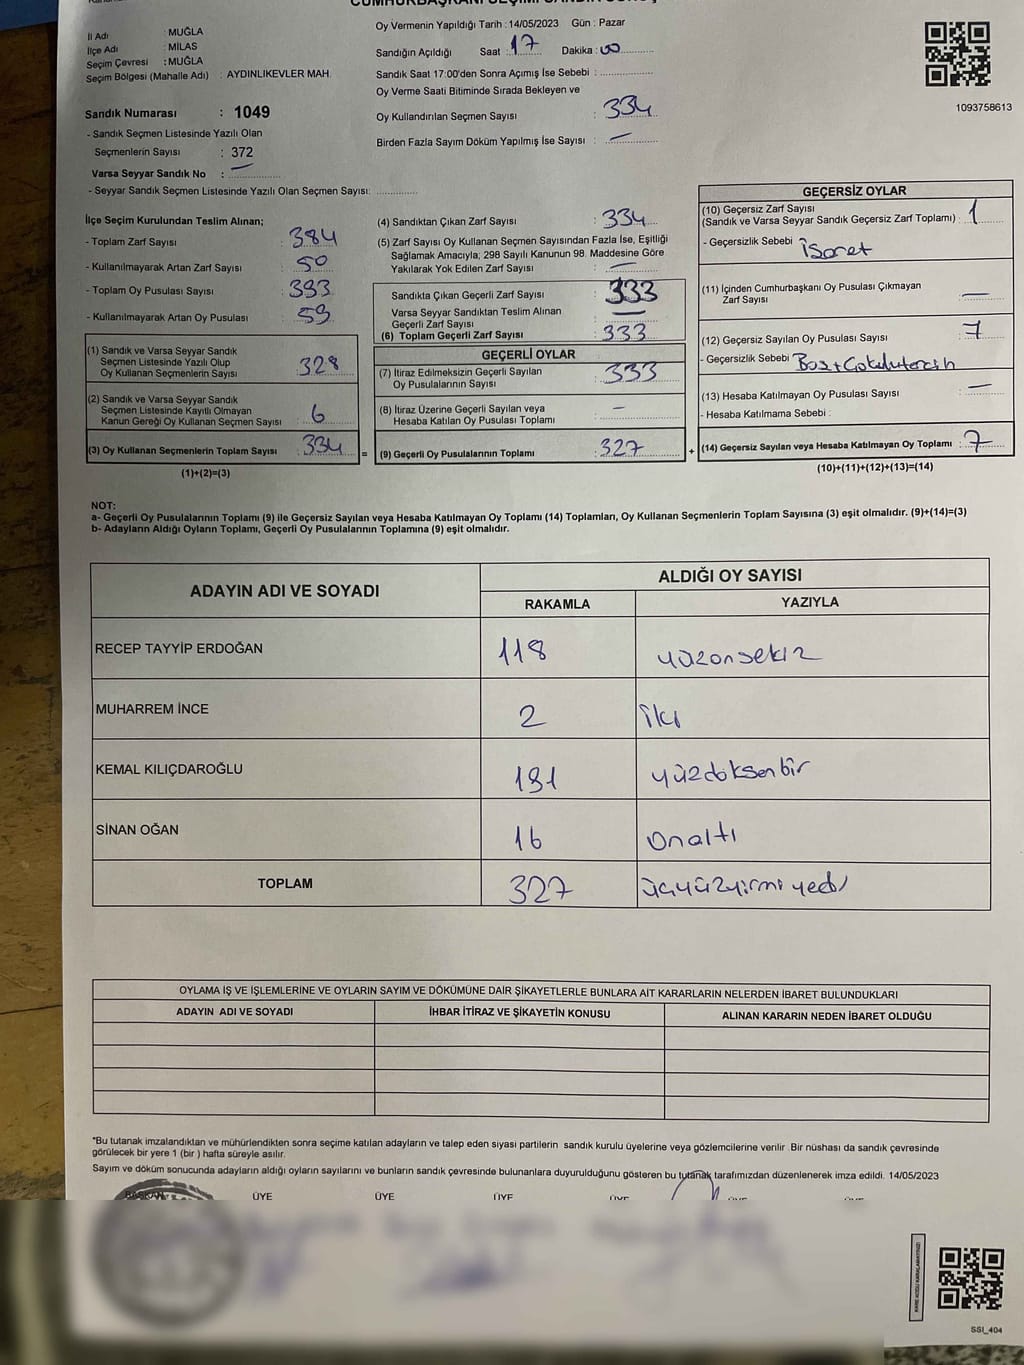 İl Adı : MUĞLA
İlçe Adı : MİLAS
Seçim Çevresi : MUĞLA
Seçim Bölgesi (Mahalle Adı) : AYDINLIKEVLER MAH.
Sandık Numarası : 1049
- Sandık Seçmen Listesinde Yazılı Olan
Seçmenlerin Sayısı : 372
Varsa Seyyar Sandık No : —
- Seyyar Sandık Seçmen Listesinde Yazılı Olan Seçmen Sayısı:
Oy Vermenin Yapıldığı Tarih : 14/05/2023 Gün : Pazar
Sandığın Açıldığı Saat : 17 Dakika : 00
Sandık Saat 17:00'den Sonra Açımış İse Sebebi :
Oy Verme Saati Bitiminde Sırada Bekleyen ve
Oy Kullandırılan Seçmen Sayısı : 334
Birden Fazla Sayım Döküm Yapılmış İse Sayısı : —
1093758613
İlçe Seçim Kurulundan Teslim Alınan;
- Toplam Zarf Sayısı : 384
- Kullanılmayarak Artan Zarf Sayısı : 50
- Toplam Oy Pusulası Sayısı : 393
- Kullanılmayarak Artan Oy Pusulası : 59
(1) Sandık ve Varsa Seyyar Sandık
Seçmen Listesinde Yazılı Olup
Oy Kullanan Seçmenlerin Sayısı : 328
(2) Sandık ve Varsa Seyyar Sandık
Seçmen Listesinde Kayıtlı Olmayan
Kanun Gereği Oy Kullanan Seçmen Sayısı : 6
(3) Oy Kullanan Seçmenlerin Toplam Sayısı : 334
(1)+(2)=(3)
=
(4) Sandıktan Çıkan Zarf Sayısı : 334
(5) Zarf Sayısı Oy Kullanan Seçmen Sayısından Fazla İse, Eşitliği
Sağlamak Amacıyla; 298 Sayılı Kanunun 98. Maddesine Göre
Yakılarak Yok Edilen Zarf Sayısı : —
Sandıkta Çıkan Geçerli Zarf Sayısı : 333
Varsa Seyyar Sandıktan Teslim Alınan
Geçerli Zarf Sayısı : —
(6) Toplam Geçerli Zarf Sayısı : 333
GEÇERLİ OYLAR
(7) İtiraz Edilmeksizin Geçerli Sayılan
Oy Pusulalarının Sayısı : 333
(8) İtiraz Üzerine Geçerli Sayılan veya
Hesaba Katılan Oy Pusulası Toplamı : —
(9) Geçerli Oy Pusulalarının Toplamı : 327
+
GEÇERSİZ OYLAR
(10) Geçersiz Zarf Sayısı
(Sandık ve Varsa Seyyar Sandık Geçersiz Zarf Toplamı) : 1
- Geçersizlik Sebebi : İşaret
(11) İçinden Cumhurbaşkanı Oy Pusulası Çıkmayan
Zarf Sayısı : —
(12) Geçersiz Sayılan Oy Pusulası Sayısı : 7
- Geçersizlik Sebebi Boş+Çoklutercih
(13) Hesaba Katılmayan Oy Pusulası Sayısı : —
- Hesaba Katılmama Sebebi :
(14) Geçersiz Sayılan veya Hesaba Katılmayan Oy Toplamı : 7
(10)+(11)+(12)+(13)=(14)
NOT:
a- Geçerli Oy Pusulalarının Toplamı (9) ile Geçersiz Sayılan veya Hesaba Katılmayan Oy Toplamı (14) Toplamları, Oy Kullanan Seçmenlerin Toplam Sayısına (3) eşit olmalıdır. (9)+(14)=(3)
b- Adayların Aldığı Oyların Toplamı, Geçerli Oy Pusulalarının Toplamına (9) eşit olmalıdır.
ADAYIN ADI VE SOYADI ALDIĞI OY SAYISI
RAKAMLA YAZIYLA
RECEP TAYYİP ERDOĞAN 118 yüzonsekiz
MUHARREM İNCE 2 iki
KEMAL KILIÇDAROĞLU 191 yüzdoksanbir
SİNAN OĞAN 16 onaltı
TOPLAM 327 üçyüzyirmiyedi
OYLAMA İŞ VE İŞLEMLERİNE VE OYLARIN SAYIM VE DÖKÜMÜNE DAİR ŞİKAYETLERLE BUNLARA AİT KARARLARIN NELERDEN İBARET BULUNDUKLARI
ADAYIN ADI VE SOYADI İHBAR İTİRAZ VE ŞİKAYETİN KONUSU ALINAN KARARIN NEDEN İBARET OLDUĞU
*Bu tutanak imzalandıktan ve mühürlendikten sonra seçime katılan adayların ve talep eden siyasi partilerin sandık kurulu üyelerine veya gözlemcilerine verilir. Bir nüshası da sandık çevresinde
görülecek bir yere 1 (bir ) hafta süreyle asılır.
Sayım ve döküm sonucunda adayların aldığı oyların sayılarını ve bunların sandık çevresinde bulunanlara duyurulduğunu gösteren bu tutanak tarafımızdan düzenlenerek imza edildi. 14/05/2023
BAŞKAN ÜYE ÜYE ÜYE ÜYE ÜYE ÜYE
SSI_404